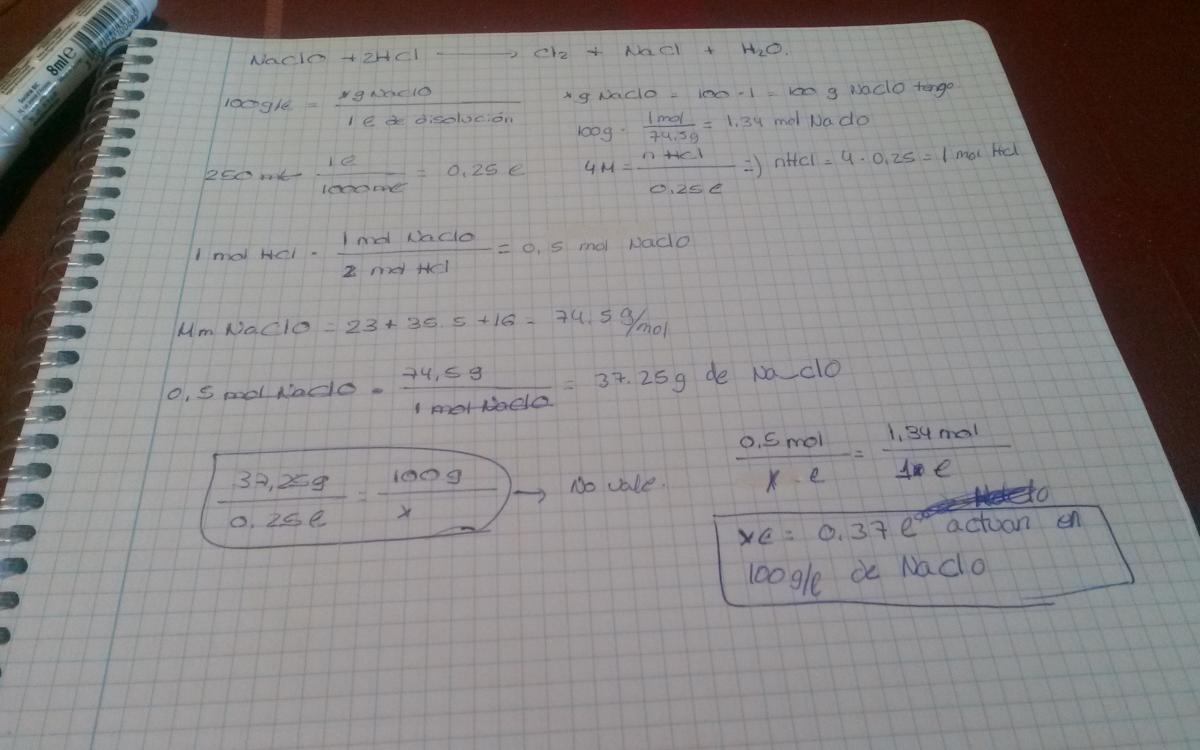 8ml e
NaClO + 2HCl ⟶ Cl2 + NaCl + H2O.
100g/ℓ = xg NaClO / 1ℓ de disolución
xg NaClO = 100 · 1 = 100 g NaClO tengo
100g · 1mol / 74,5g = 1,34 mol NaClO
250 mℓ 1ℓ / 1000mℓ = 0,25 ℓ
4M = n HCl / 0,25ℓ =) nHCl = 4 · 0,25 = 1 mol HCl
1 mol HCl · 1 mol NaClO / 2 mol HCl = 0,5 mol NaClO
Mm NaClO = 23 + 35.5 + 16 = 74,5 g/mol
0,5 mol NaClO · 74,5 g / 1 mol NaClO = 37.25g de NaClO
37,25g / 0,25ℓ = 100g / x → No vale.
0,5 mol / x · ℓ = 1,34 mol / 1 ℓ
xℓ = 0.37 ℓ actuan en
100g/ℓ de NaClO